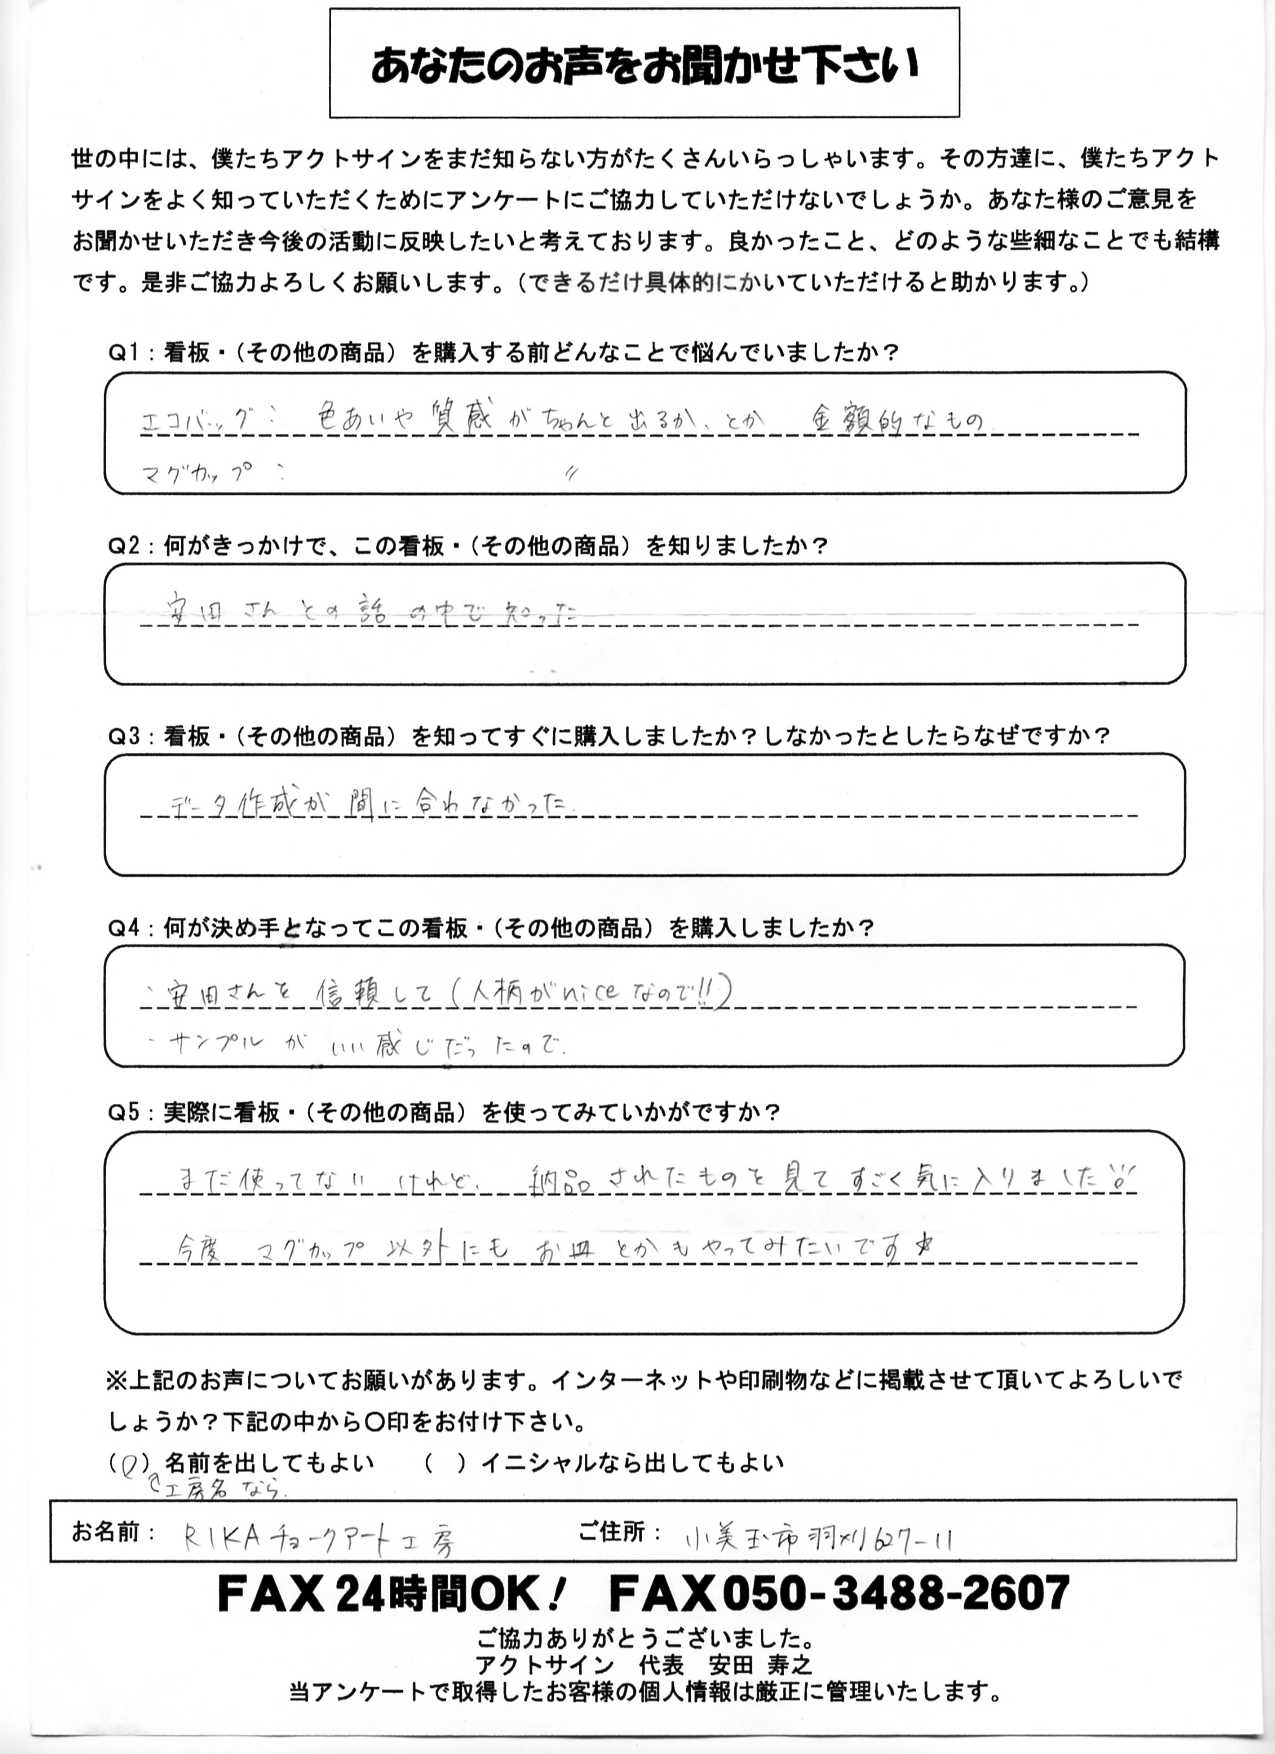 あなたのお声をお聞かせ下さい
世の中には、僕たちアクトサインをまだ知らない方がたくさんいらっしゃいます。その方達に、僕たちアクト
サインをよく知っていただくためにアンケートにご協力していただけないでしょうか。あなた様のご意見を
お聞かせいただき今後の活動に反映したいと考えております。良かったこと、どのような些細なことでも結構
です。是非ご協力よろしくお願いします。（できるだけ具体的にかいていただけると助かります。）
Q1：看板・（その他の商品）を購入する前どんなことで悩んでいましたか？
エコバッグ： 色あいや質感がちゃんと出るか、とか 金額的なもの
マグカップ： 〃
Q2：何がきっかけで、この看板・（その他の商品）を知りましたか？
安田さんとの話の中で知った
Q3：看板・（その他の商品）を知ってすぐに購入しましたか？しなかったとしたらなぜですか？
データ作成が間に合わなかった
Q4：何が決め手となってこの看板・（その他の商品）を購入しましたか？
・安田さんを信頼して（人柄がniceなので!!）
・サンプルがいい感じだったので。
Q5：実際に看板・（その他の商品）を使ってみていかがですか？
まだ使ってないけれど、納品されたものを見てすごく気に入りました
今度マグカップ以外にもお皿とかもやってみたいです☆
※上記のお声についてお願いがあります。インターネットや印刷物などに掲載させて頂いてよろしいで
しょうか？下記の中から〇印をお付け下さい。
（〇）名前を出してもよい （ ）イニシャルなら出してもよい
工房名なら。
お名前： RIKAチョークアート工房 ご住所： 小美玉市羽刈627-11
FAX 24時間OK！ FAX 050-3488-2607
ご協力ありがとうございました。
アクトサイン 代表 安田 寿之
当アンケートで取得したお客様の個人情報は厳正に管理いたします。